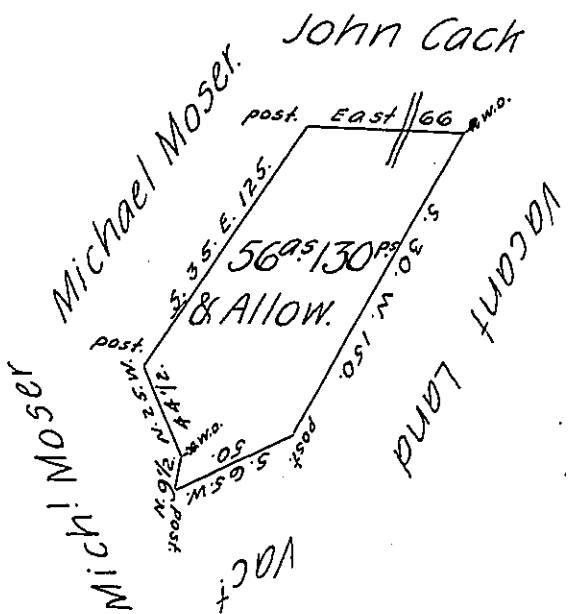 John Cack
Michael Moser.
post. East 66 W.O.
S. 35. E. 125.
56 a.s 130 p.s
& Allow.
S. 30. W. 150.
Vacant Land
post.
N. 25. W. 44 1/2.
W.O.
Mich! Moser
post.
S. 65. W. 50
post.
Vact